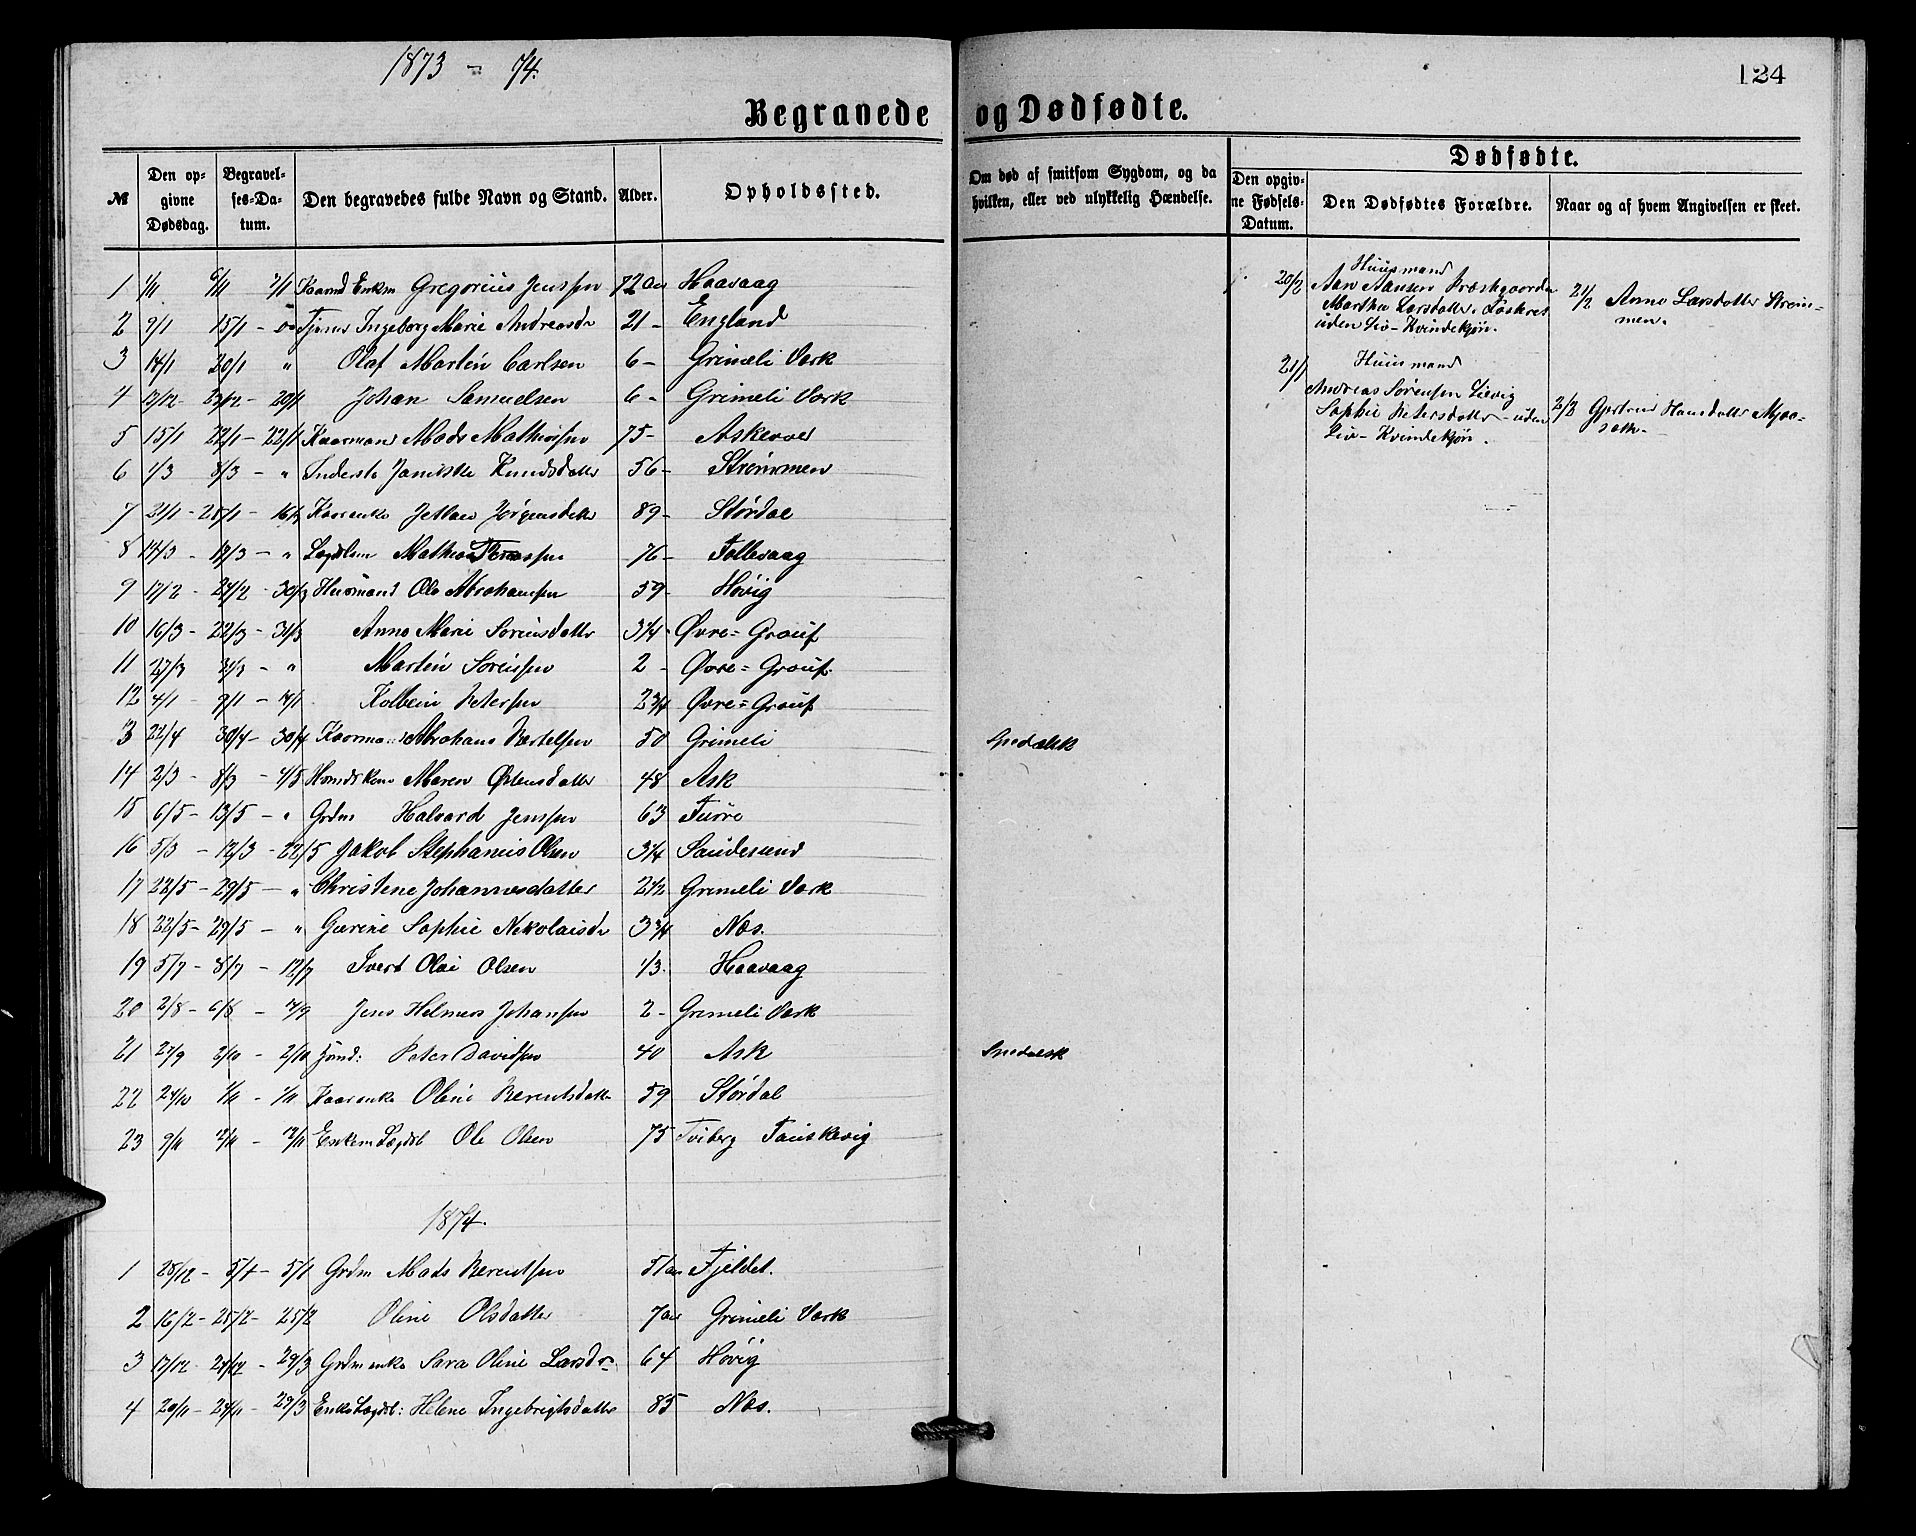 1873 - 74.
124
Begravede og Dødfødte.
№
Den opgivne Dødsdag.
Begravelses-Datum.
Den begravedes fulde Navn og Stand.
Alder.
Opholdssted.
Om død af smitsom Sygdom, og da hvilken, eller ved ulykkelig Hændelse.
Dødfødte.
Den opgivne Fødsels-Datum.
Den Dødfødtes Forældre.
Naar og af hvem Angivelsen er skeet.
1 1/11 6/11 Gregorius Jenssen 72 Aar Haavaag
2 9/1 15/1 Ingeborg Marie Andreasdr 21 - England
3 14/1 20/1 " Olaf Martin Carlsen 6 - Grimeli Værk
4 Johan Samuelsen 6 - Grimeli Værk
5 15/1 22/1 - 22/1 Kaarmand Mads Mathissen 75 - Askevoer
6 1/3 8/3 - " Inderst Knudsdatter 56 - Strømmen
7 21/1 - 28/1 - Kaarenke Jørgensdatter 89 - Størdal
8 14/3 - 19/3 - " Mathias 76 - Follevaag
9 17/2 - 24/2 - 30/3 Huusmand Ole Abrahamsen 59 - Høvig
10 16/3 - 22/3 - 31/3 Anne Marie Sørensdatter 3/4 - Øvre-Grouf
11 27/3 31/3 - " Martin Sørensen 2 - Øvre-Grouf.
12 4/1 9/1 - Kolbein Petersen 2 3/4 Øvre-Grouf
3 22/4 30/4 - 30/4 Kaarmand Abraham Bertelsen 50 Grimeli Spedalsk
14 2/3 - 8/3 - 4/5 Maren Østensdatter 48 Ask
15 6/5 - 13/5 - " Grdm Halvard Jenssen 63 Furre
16 5/3 - 12/3 - 22/5 Jakob Stephanus Olsen 3/4 Saudesund
17 22/5 - 29/5 - " Christene Johannesdatter 2 1/2 Grimeli Værk
18 22/5 - 29/5 - " Gurine Sophie Nikolaisdr 3 3/4 Næs.
19 5/7 - 8/7 - 12/7 Ivert Olai Olsen 1/3. Haavaag
20 2/8 - 6/8 - 7/9 Jens Helmers Johansen 2 - Grimeli Værk
21 27/9 2/10 - 2/10 Peter Davidsen 40 Ask Spedalsk
22 24/10 1/11 - 1/11 Kaarenke Oline Berentsdatter 59 Størdal
23 9/11 Enkem Lægdsl Ole Olsen 75 Tviberg Fauskevig
1874.
1 28/12 - 5/1 - 5/1 Grdm Mads Berentsen 51 aar Fjeldet.
2 16/2 - 25/2 - 25/2 Oline Olsdatter 7 aar Grimeli Værk
3 17/12 - 24/12 - 29/3 Grdm enke Sara Oline Larsdr 64 Høvig
4 20/11 - 24/11 - 29/3 Enke Lægdsl: Helene Ingebrigtsdatter 85 Næs.
20/2 Huusmand
Aan Aansen Præstgaarden
Marthe Larsdatter. Foskret
uden Liv - Kvindekjøn.
21/2 Anne Larsdatter Strømmen.
21/1 Huusmand
Andreas Sørensen Lievig
Sophie Petersdatter - uden
Liv - Kvindekjøn.
2/2 Hansdatter